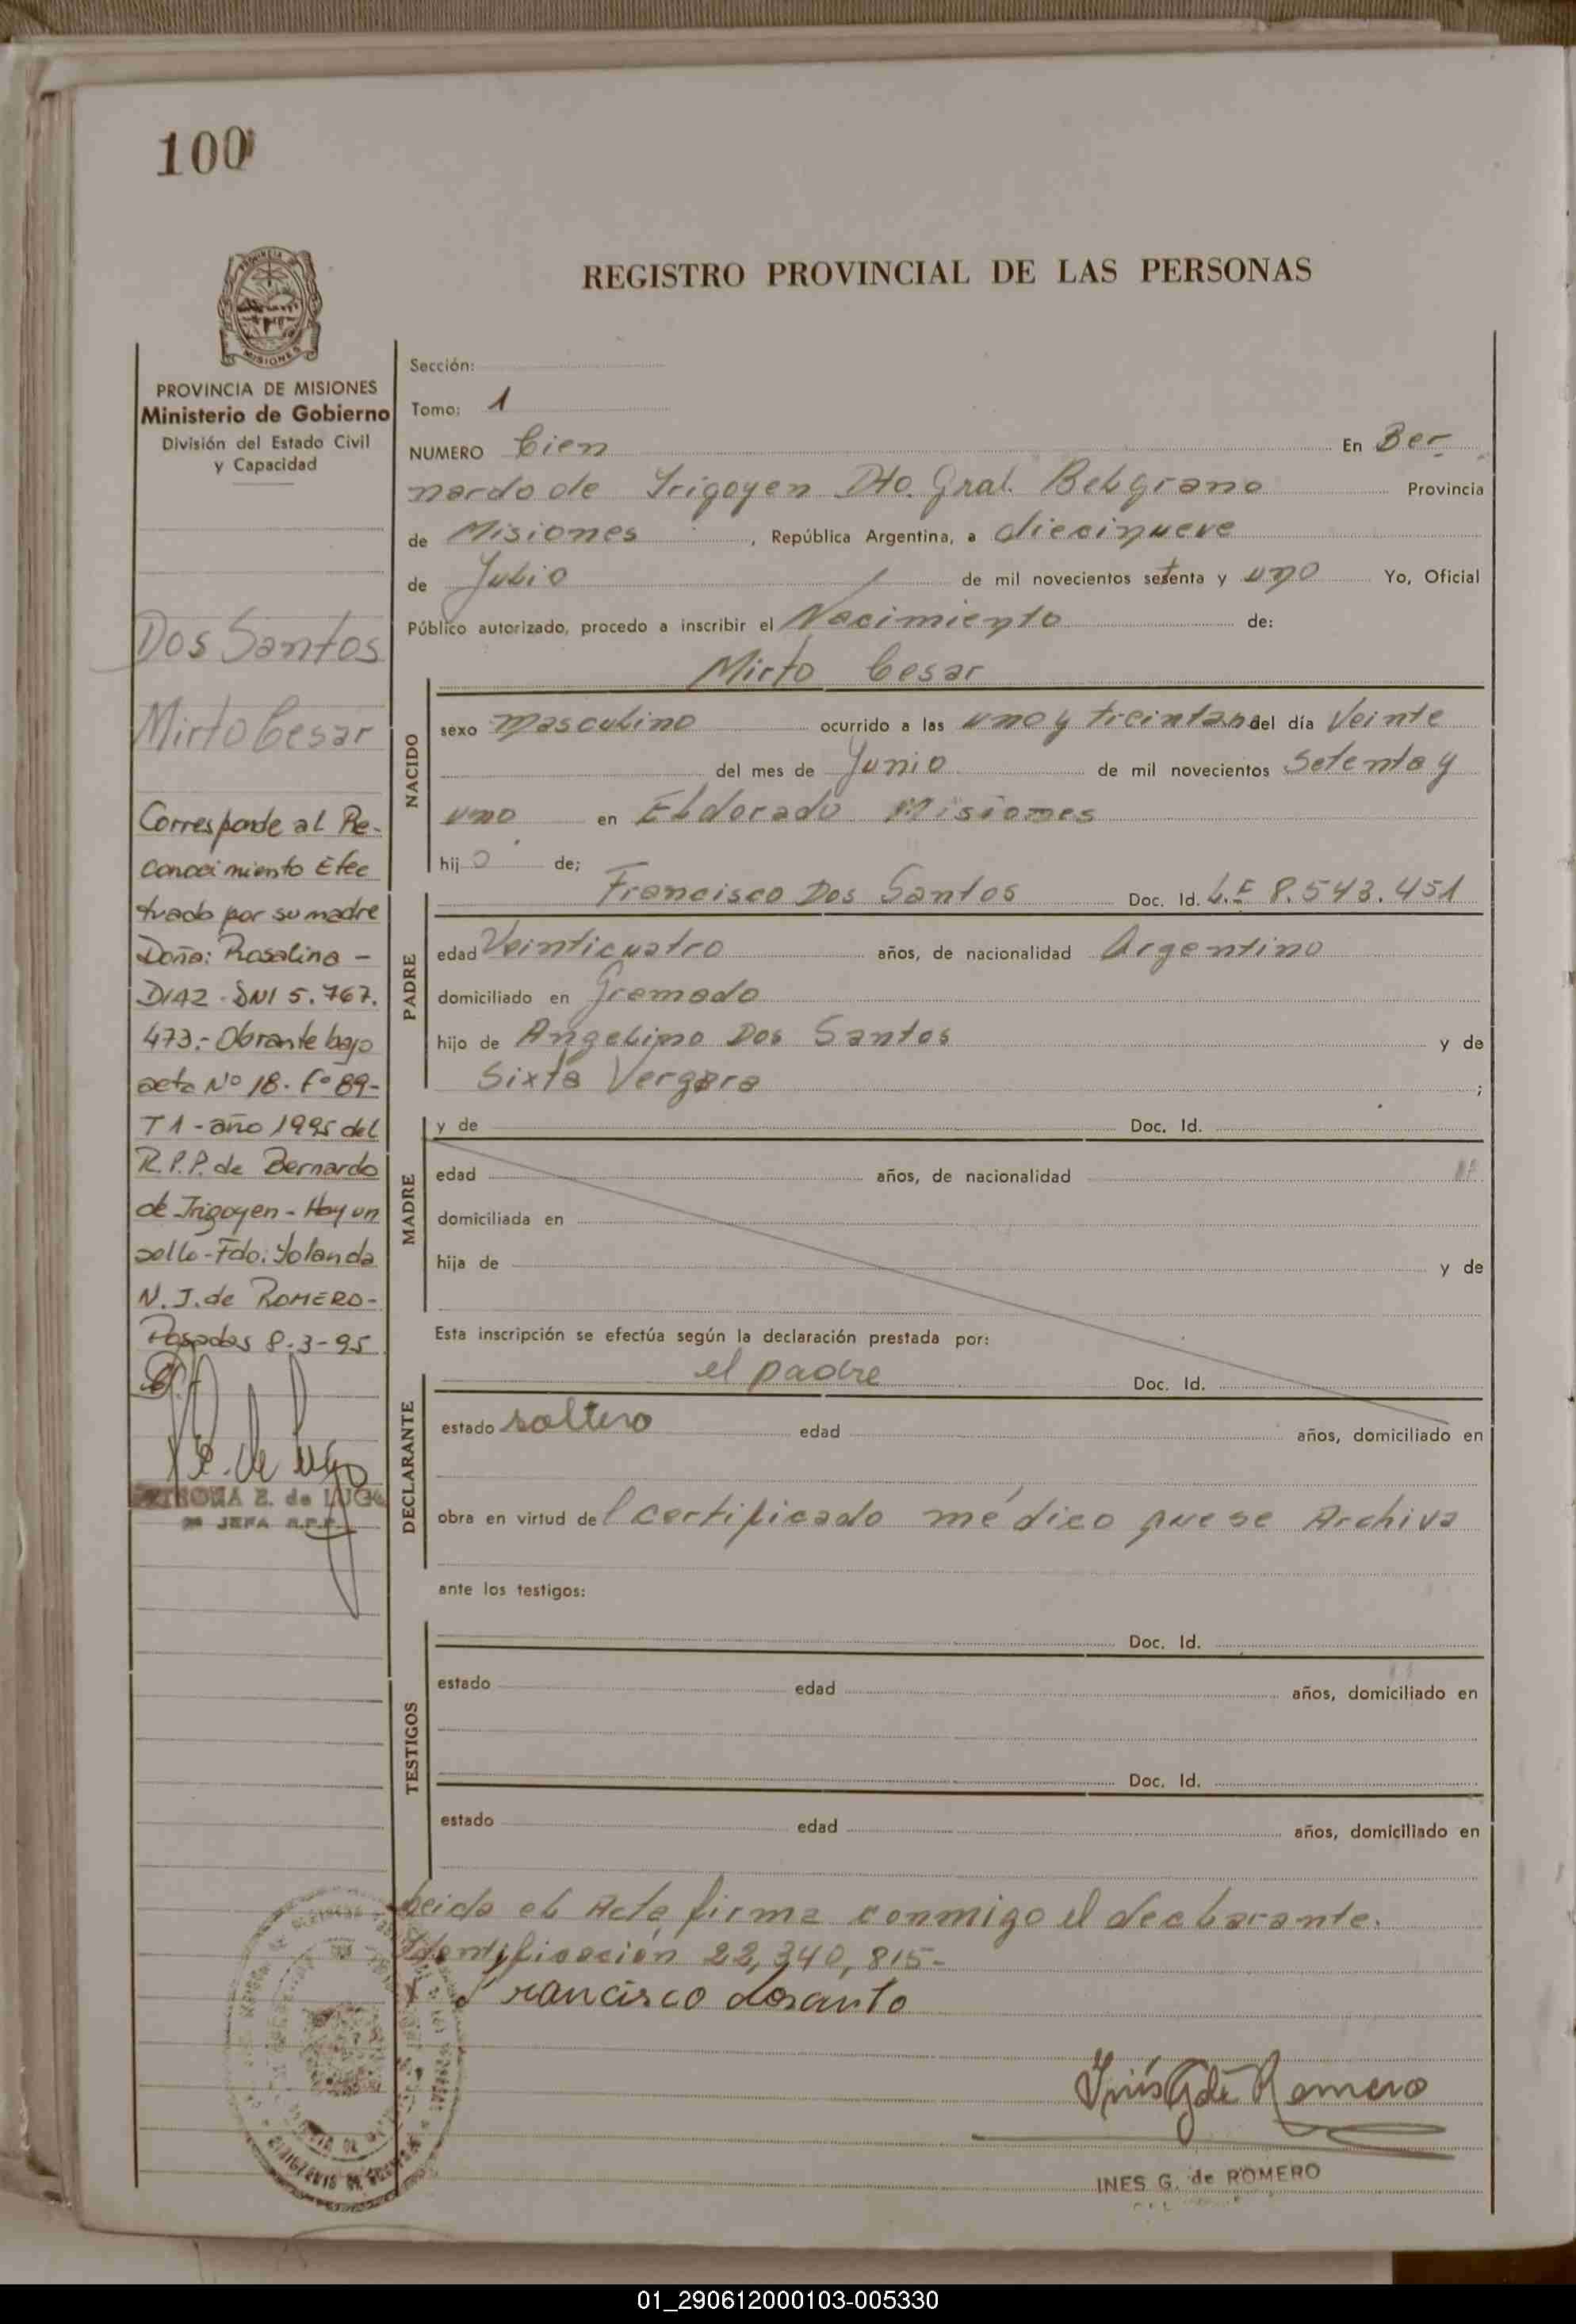 100
REGISTRO PROVINCIAL DE LAS PERSONAS
MISIONES
PROVINCIA DE MISIONES
Ministerio de Gobierno
División del Estado Civil
y Capacidad
Dos Santos
Mirto Cesar
Corresponde al Re-
conocimiento Efec
tuado por su madre
Doña: Rosalina -
DIAZ - DNI 5.767.
473.- Obrante bajo
acta Nº 18. Fº 89-
T 1 - año 1995 del
R.P.P. de Bernardo
de Irigoyen - Hay un
sello - Fdo: Yolanda
N. J. de ROMERO-
Posadas 8-3-95
E. de LUGO
JEFA R.P.P.
Sección:
Tomo: 1
NUMERO Cien En Ber
nardo de Irigoyen Dto. Gral. Belgrano Provincia
de Misiones, República Argentina, a diecinueve
de Julio de mil novecientos setenta y uno Yo, Oficial
Público autorizado, procedo a inscribir el Nacimiento de:
Mirto Cesar
NACIDO
sexo masculino ocurrido a las uno y treinta del día Veinte
del mes de Junio de mil novecientos Setenta y
uno en Eldorado Misiones
hijo de;
Francisco Dos Santos Doc. Id. L.E 8.543.451
PADRE
edad Veinticuatro años, de nacionalidad Argentino
domiciliado en Gramado
hijo de Angelino Dos Santos y de
Sixta Vergara ;
y de Doc. Id.
MADRE
edad años, de nacionalidad
domiciliada en
hija de y de
Esta inscripción se efectúa según la declaración prestada por:
el padre Doc. Id.
DECLARANTE
estado soltero edad años, domiciliado en
obra en virtud del certificado médico que se Archiva
ante los testigos:
Doc. Id.
TESTIGOS
estado edad años, domiciliado en
Doc. Id.
estado edad años, domiciliado en
Leida el Acta firma conmigo el declarante.
Identificación 22,340,815-
Francisco dosanto
Inés G de Romero
INES G. de ROMERO
01_290612000103-005330